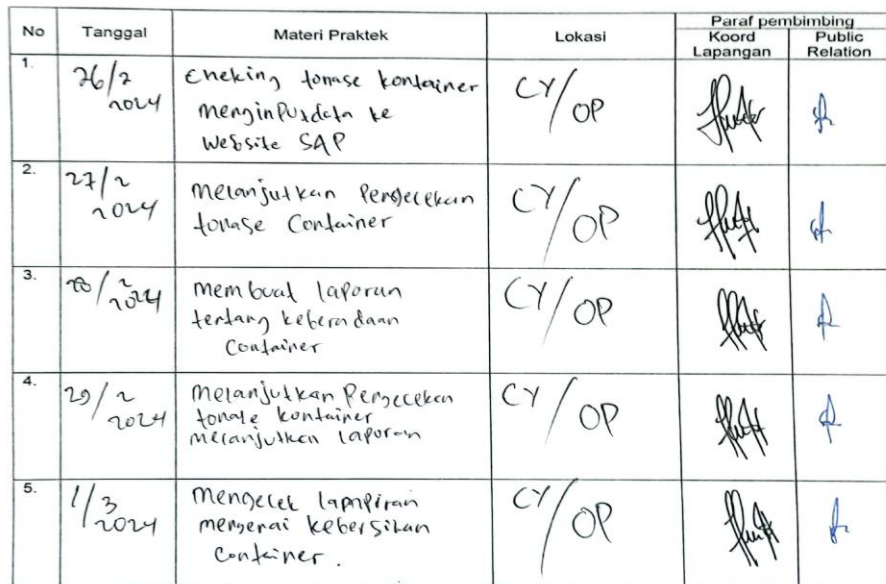 No Tanggal Materi Praktek Lokasi Paraf pembimbing
Koord Lapangan Public Relation
1. 26/2 2024 Cheking tonase kontainer CY/OP
menginput data ke
website SAP
2. 27/2 2024 Melanjutkan Pengecekan CY/OP
tonase Container
3. 28/2 2024 Membuat laporan CY/OP
tentang keberadaan
Container
4. 29/2 2024 Melanjutkan Pengecekan CY/OP
tonase kontainer
melanjutkan laporan
5. 1/3 2024 Mengecek lampiran CY/OP
mengenai kebersihan
Container.